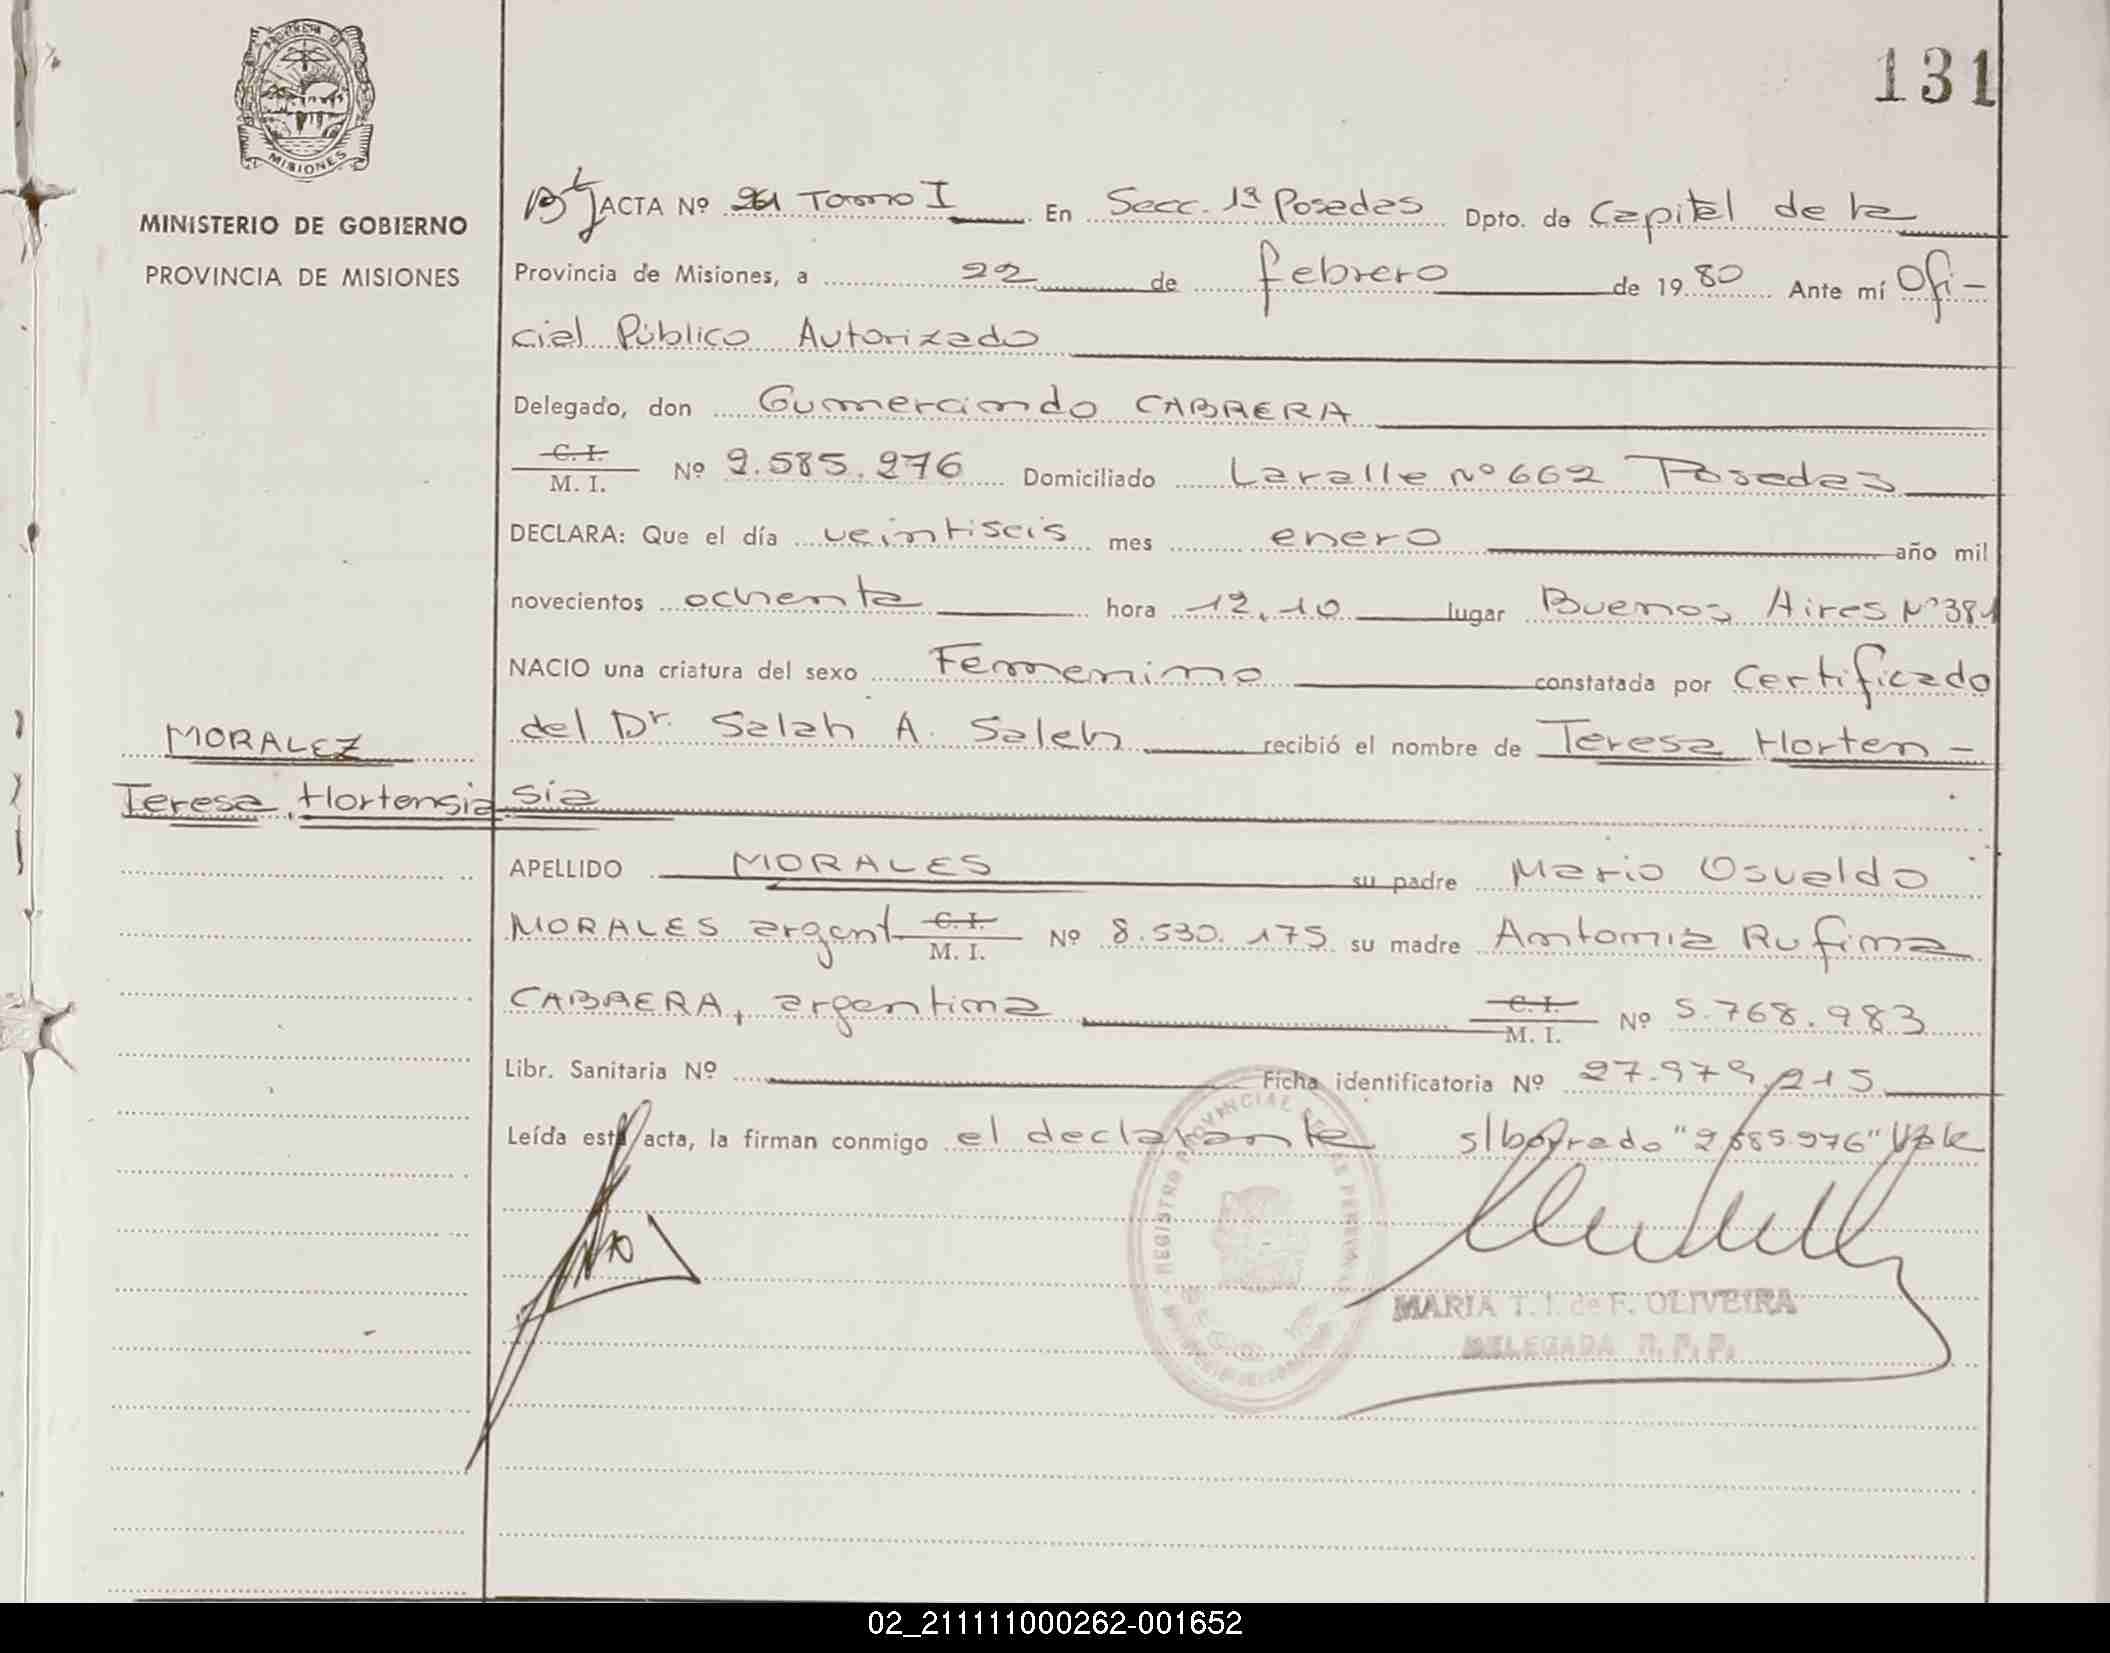 131
PROVINCIA D
MISIONES
MINISTERIO DE GOBIERNO
PROVINCIA DE MISIONES
ACTA Nº 261 Tomo I En Secc. 1ª Posadas Dpto. de Capital de la
Provincia de Misiones, a 22 de febrero de 1980 Ante mí Ofi-
cial Público Autorizado
Delegado, don Gumercindo CABRERA
C. I.
M. I. Nº 2.585.276 Domiciliado Lavalle Nº 662 Posadas
DECLARA: Que el día veintiseis mes enero año mil
novecientos ochenta hora 12,10 lugar Buenos Aires Nº 381
NACIO una criatura del sexo Femenino constatada por Certificado
del Dr. Salah A. Saleh recibió el nombre de Teresa Horten-
sia
MORALEZ
Teresa Hortensia
APELLIDO MORALES su padre Mario Osvaldo
MORALES argent C. I.
M. I. Nº 8.530.175 su madre Antonia Rufina
CABRERA, argentina C. I.
M. I. Nº 5.768.983
Libr. Sanitaria Nº Ficha identificatoria Nº 27.979.215
Leída esta acta, la firman conmigo el declarante s/borrado "2.585.276" Vale
REGISTRO PROVINCIAL
MARIA T. I. de F. OLIVEIRA
DELEGADA R. P. P.
02_211111000262-001652